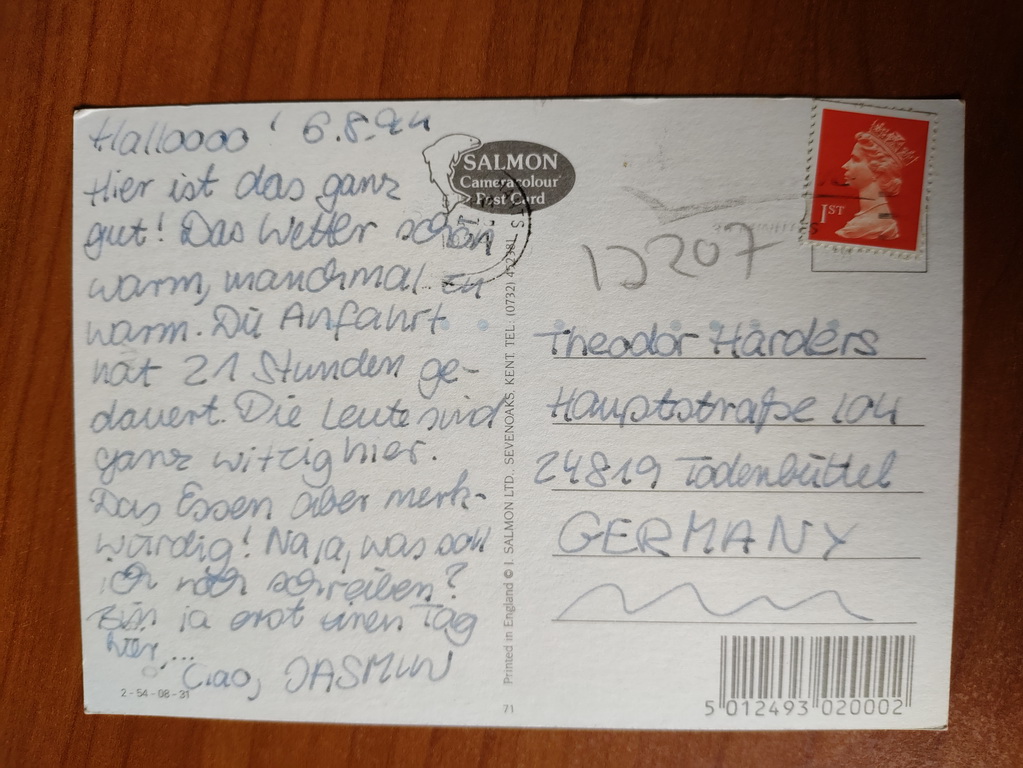 Halloooo! 6.8.94
Hier ist das ganz
gut! Das Wetter schön
warm, manchmal zu
warm. Die Anfahrt
hat 21 Stunden ge-
dauert. Die Leute sind
ganz witzig hier.
Das Essen aber merk-
würdig! Naja, was soll
ich noch schreiben?
Bin ja erst einen Tag
hier,...
Ciao, JASMIN
2-54-08-31
SALMON
Cameracolour
Post Card
Printed in England © J. SALMON LTD., SEVENOAKS, KENT. TEL. (0732) 452381
71
1ST
12207
Theodor Harders
Hauptstraße 104
24819 Todenbüttel
GERMANY
5 012493 020002